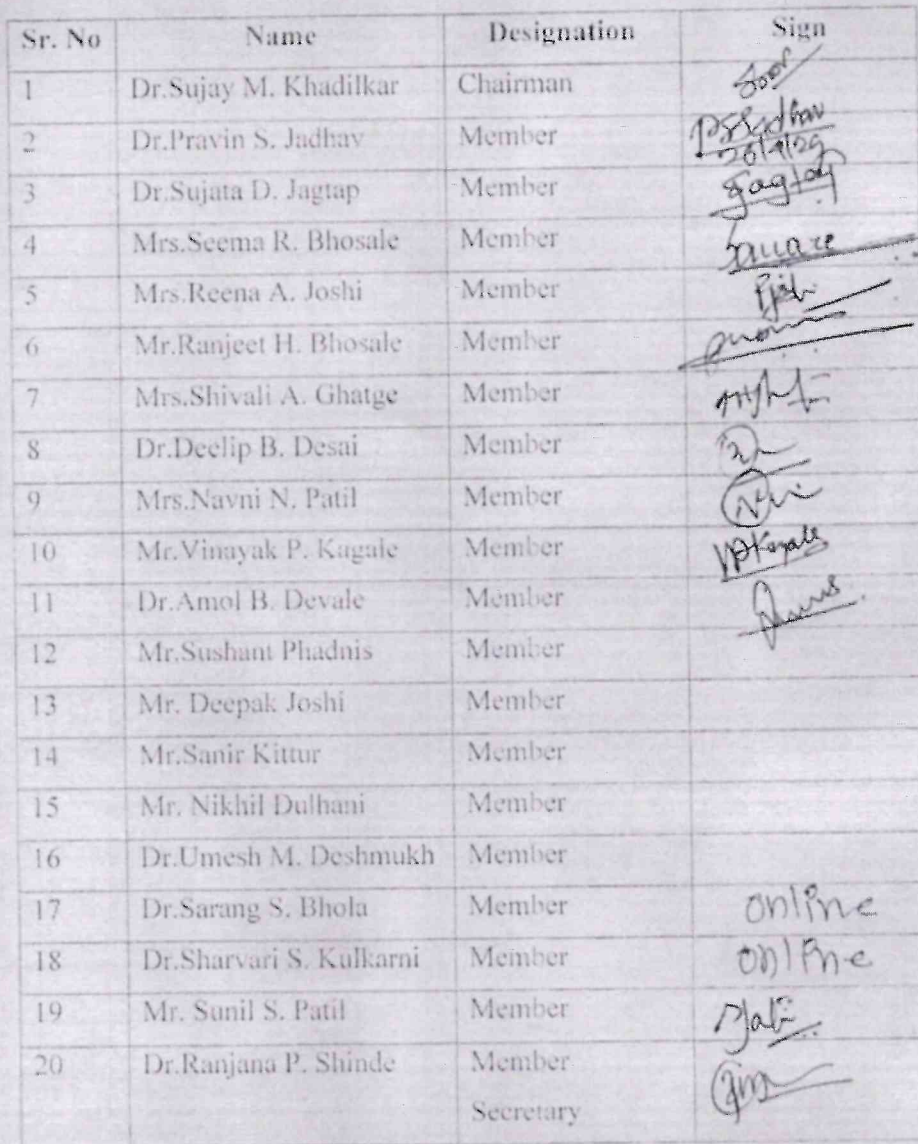 Sr. No Name Designation Sign
1 Dr.Sujay M. Khadilkar Chairman
2 Dr.Pravin S. Jadhav Member PSJadhav
3 Dr.Sujata D. Jagtap Member Jagtap
4 Mrs.Seema R. Bhosale Member
5 Mrs.Reena A. Joshi Member
6 Mr.Ranjeet H. Bhosale Member
7 Mrs.Shivali A. Ghatge Member
8 Dr.Deelip B. Desai Member
9 Mrs.Navni N. Patil Member
10 Mr.Vinayak P. Kagale Member
11 Dr.Amol B. Devale Member
12 Mr.Sushant Phadnis Member
13 Mr. Deepak Joshi Member
14 Mr.Sanir Kittur Member
15 Mr. Nikhil Dulhani Member
16 Dr.Umesh M. Deshmukh Member
17 Dr.Sarang S. Bhola Member online
18 Dr.Sharvari S. Kulkarni Member online
19 Mr. Sunil S. Patil Member
20 Dr.Ranjana P. Shinde Member
Secretary